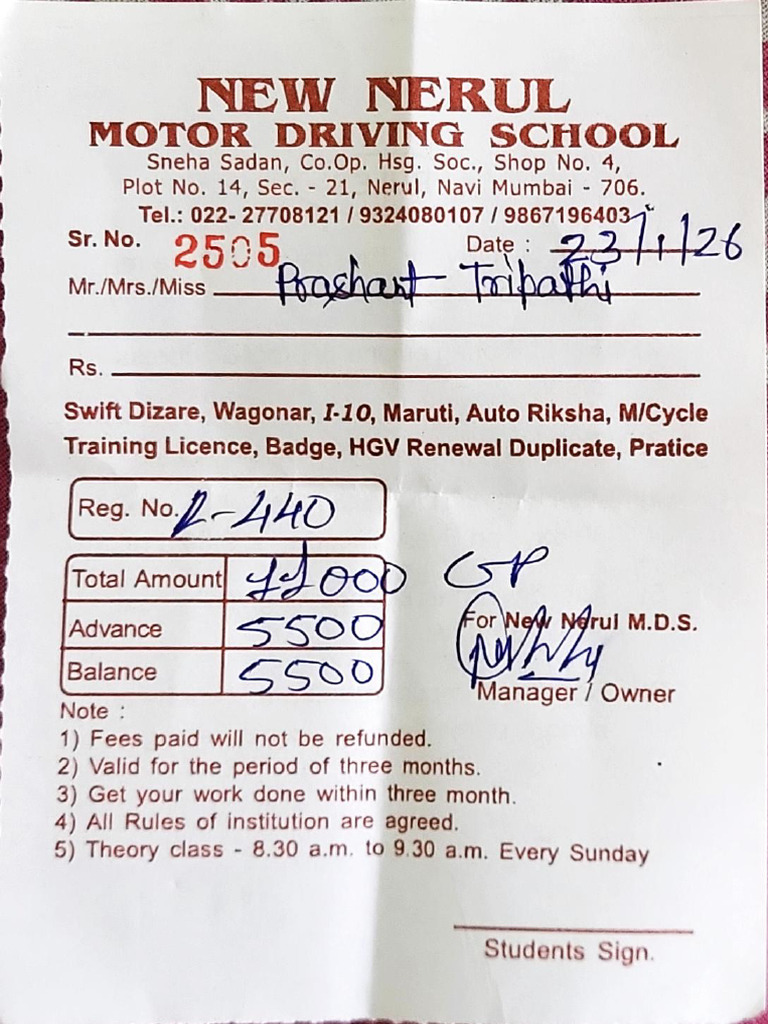 NEW NERUL
MOTOR DRIVING SCHOOL
Sneha Sadan, Co.Op. Hsg. Soc., Shop No. 4,
Plot No. 14, Sec. - 21, Nerul, Navi Mumbai - 706.
Tel.: 022- 27708121 / 9324080107 / 9867196403
Sr. No. 2505 Date : 23/1/26
Mr./Mrs./Miss Prashant Tripathi
Rs.
Swift Dizare, Wagonar, I-10, Maruti, Auto Riksha, M/Cycle
Training Licence, Badge, HGV Renewal Duplicate, Pratice
Reg. No. L-440
Total Amount 11000 GP
Advance 5500 For New Nerul M.D.S.
Balance 5500
Manager / Owner
Note :
1) Fees paid will not be refunded.
2) Valid for the period of three months.
3) Get your work done within three month.
4) All Rules of institution are agreed.
5) Theory class - 8.30 a.m. to 9.30 a.m. Every Sunday
Students Sign.